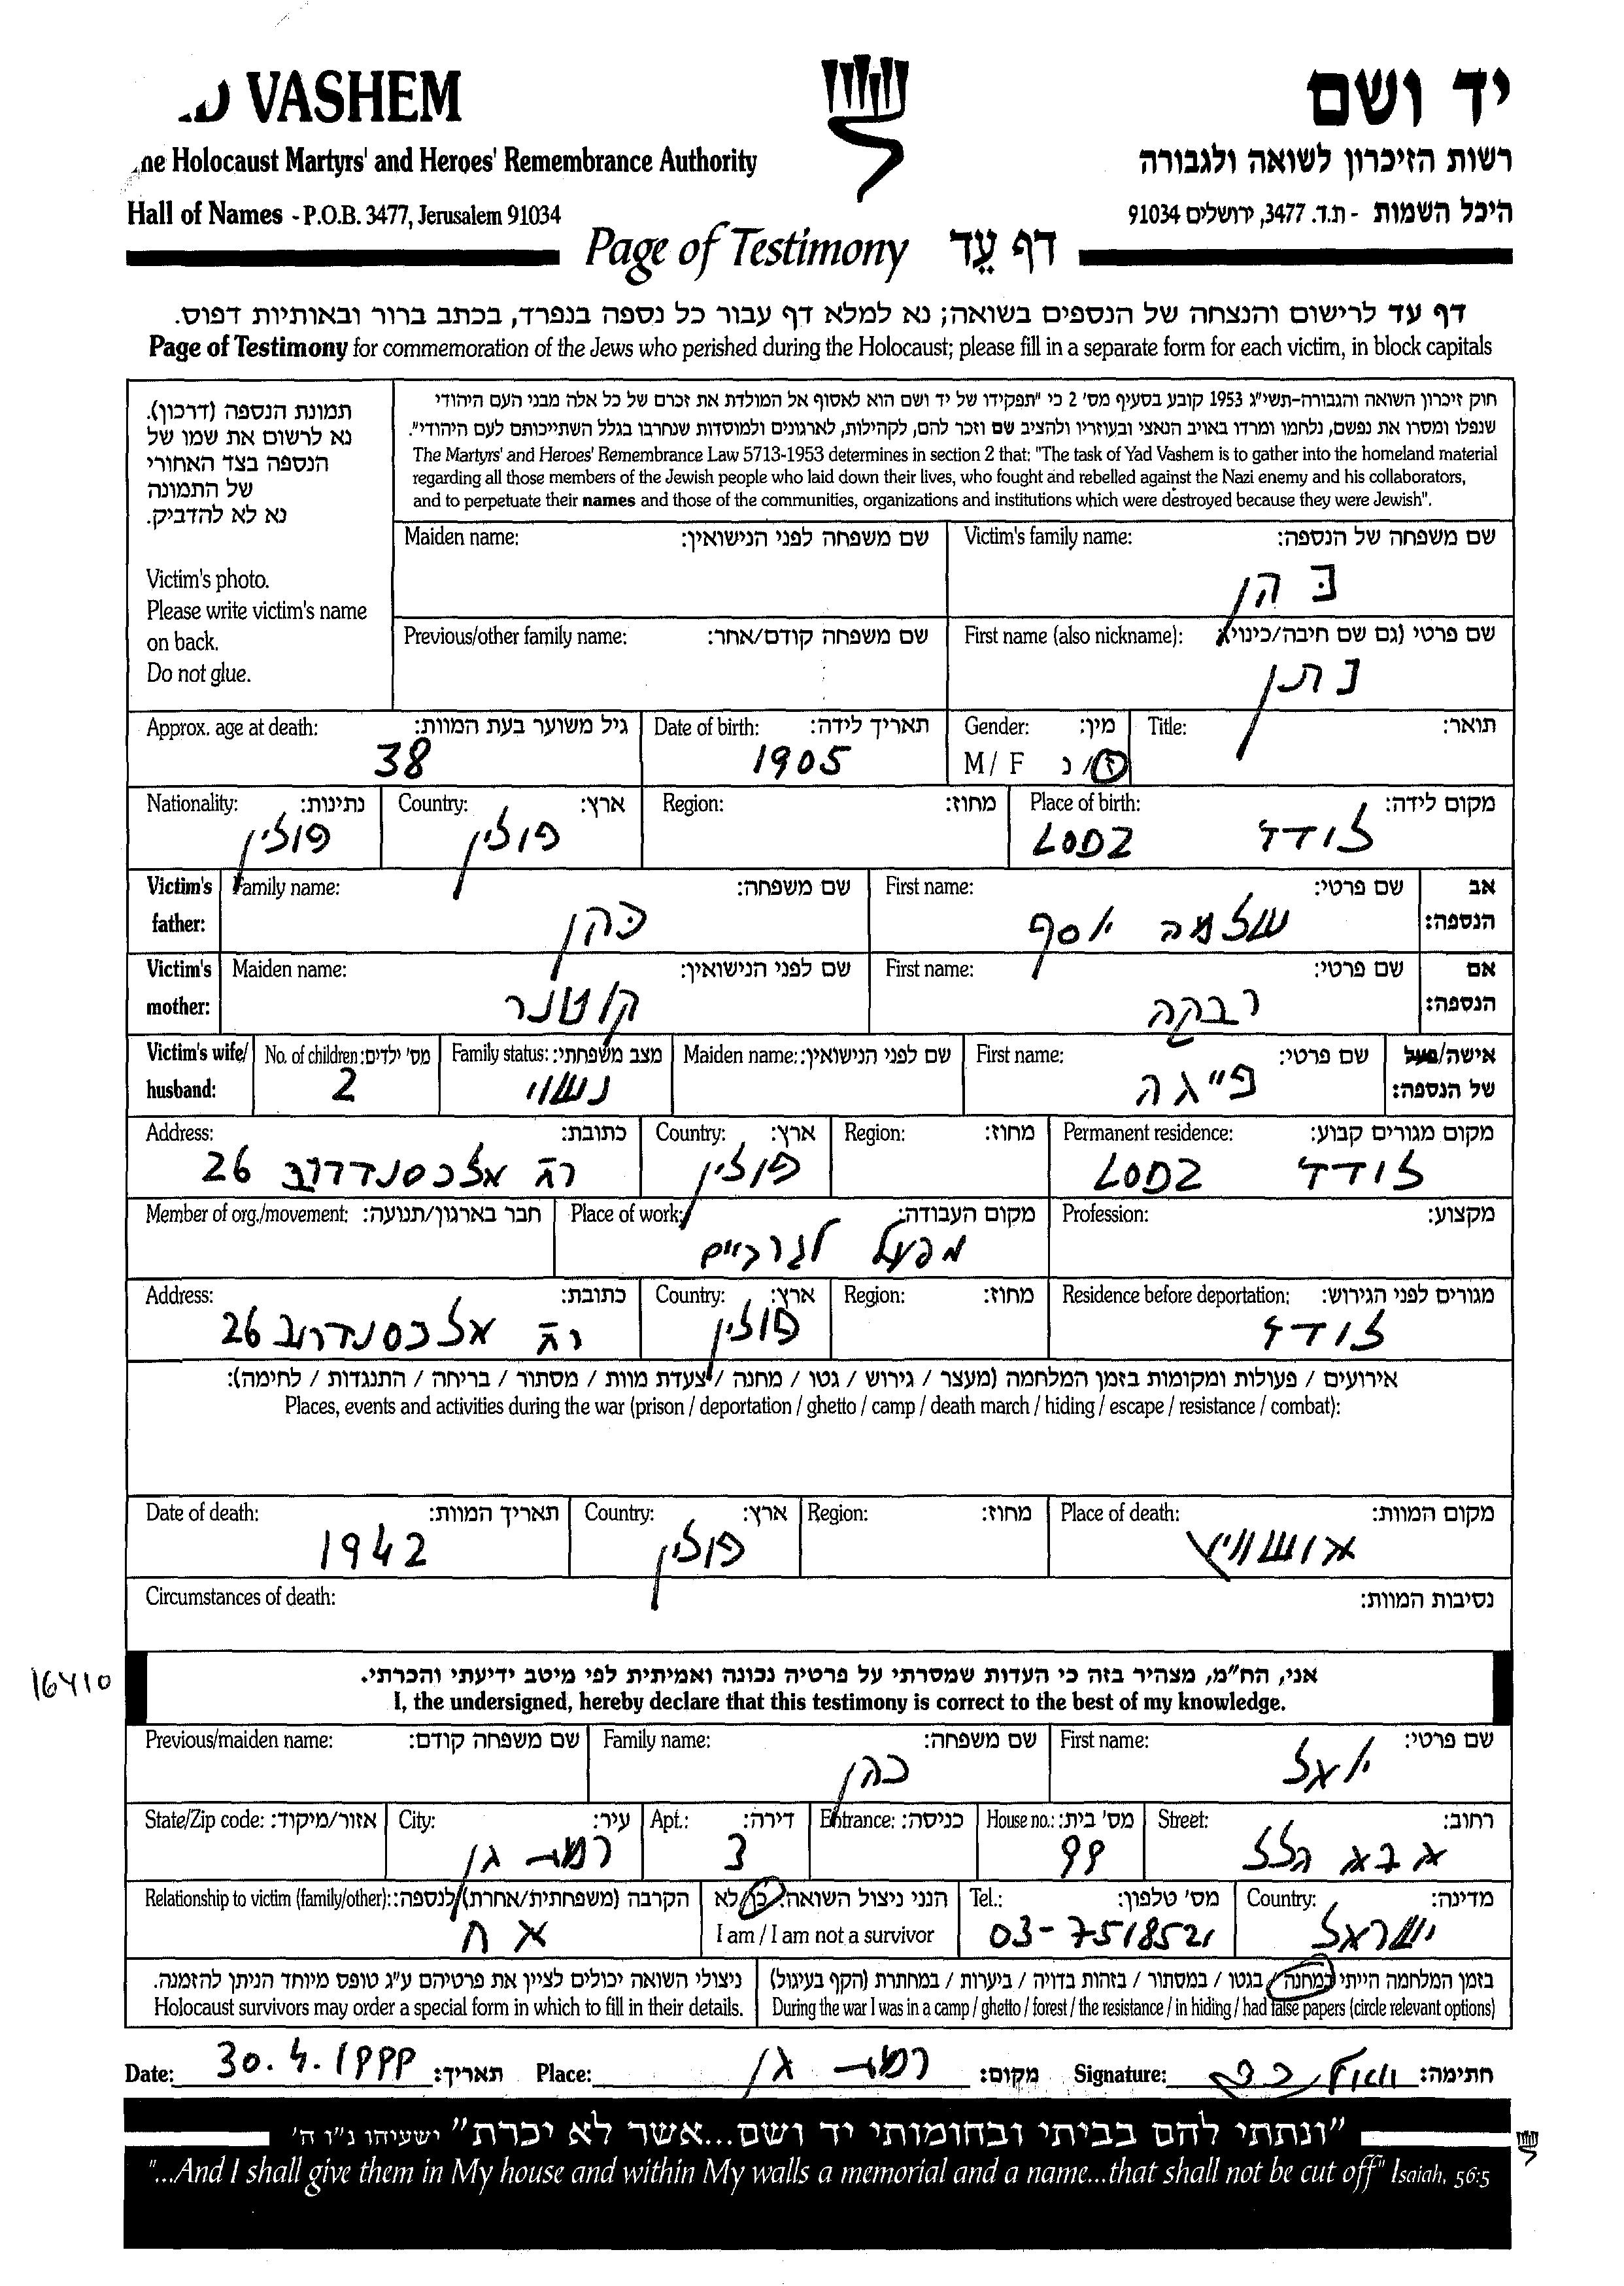 VASHEM
יד ושם
Holocaust Martyrs' and Heroes' Remembrance Authority
רשות הזיכרון לשואה ולגבורה
Hall of Names - P.O.B. 3477, Jerusalem 91034
היכל השמות - ת.ד. 3477, ירושלים 91034
Page of Testimony דף עֵד
דף עד לרישום והנצחה של הנספים בשואה; נא למלא דף עבור כל נספה בנפרד, בכתב ברור ובאותיות דפוס.
Page of Testimony for commemoration of the Jews who perished during the Holocaust; please fill in a separate form for each victim, in block capitals
תמונת הנספה (דרכון).
נא לרשום את שמו של
הנספה בצד האחורי
של התמונה
נא לא להדביק.
Victim's photo.
Please write victim's name
on back.
Do not glue.
חוק זיכרון השואה והגבורה-תשי"ג 1953 קובע בסעיף מס' 2 כי "תפקידו של יד ושם הוא לאסוף אל המולדת את זכרם של כל אלה מבני העם היהודי
שנפלו ומסרו את נפשם, נלחמו ומרדו באויב הנאצי ובעוזריו ולהציב שם וזכר להם, לקהילות, לארגונים ולמוסדות שנחרבו בגלל השתייכותם לעם היהודי".
The Martyrs' and Heroes' Remembrance Law 5713-1953 determines in section 2 that: "The task of Yad Vashem is to gather into the homeland material
regarding all those members of the Jewish people who laid down their lives, who fought and rebelled against the Nazi enemy and his collaborators,
and to perpetuate their names and those of the communities, organizations and institutions which were destroyed because they were Jewish".
Victim's family name: שם משפחה של הנספה:
כהן
Maiden name: שם משפחה לפני הנישואין:
First name (also nickname): שם פרטי (גם שם חיבה/כינוי):
נתן
Previous/other family name: שם משפחה קודם/אחר:
Title: תואר:
Gender: מין:
M / F ז/נ
Date of birth: תאריך לידה:
1905
Approx. age at death: גיל משוער בעת המוות:
38
Place of birth: מקום לידה:
לודז LODZ
Region: מחוז:
Country: ארץ:
פולין
Nationality: נתינות:
פולין
Victim's father: אב הנספה:
First name: שם פרטי:
שלמה יוסף
Family name: שם משפחה:
כהן
Victim's mother: אם הנספה:
First name: שם פרטי:
רבקה
Maiden name: שם לפני הנישואין:
קוטנר
Victim's wife/ husband: אישה/בעל של הנספה:
First name: שם פרטי:
פייגה
Maiden name: שם לפני הנישואין:
Family status: מצב משפחתי:
נשוי
No. of children: מס' ילדים:
2
Permanent residence: מקום מגורים קבוע:
לודז LODZ
Region: מחוז:
Country: ארץ:
פולין
Address: כתובת:
רח אלכסנדרוב 26
Profession: מקצוע:
Place of work: מקום העבודה:
מפעל לגרביים
Member of org./movement: חבר בארגון/תנועה:
Residence before deportation: מגורים לפני הגירוש:
לודז
Region: מחוז:
Country: ארץ:
פולין
Address: כתובת:
רח אלכסנדרוב 26
אירועים / פעולות ומקומות בזמן המלחמה (מעצר / גירוש / גטו / מחנה / צעדת מוות / מסתור / בריחה / התנגדות / לחימה):
Places, events and activities during the war (prison / deportation / ghetto / camp / death march / hiding / escape / resistance / combat):
Place of death: מקום המוות:
אושוויץ
Region: מחוז:
Country: ארץ:
פולין
Date of death: תאריך המוות:
1942
Circumstances of death: נסיבות המוות:
16410
אני, הח"מ, מצהיר בזה כי העדות שמסרתי על פרטיה נכונה ואמיתית לפי מיטב ידיעתי והכרתי.
I, the undersigned, hereby declare that this testimony is correct to the best of my knowledge.
First name: שם פרטי:
יואל
Family name: שם משפחה:
כהן
Previous/maiden name: שם משפחה קודם:
Street: רחוב:
אבא הלל
House no.: מס' בית:
99
Entrance: כניסה:
Apt.: דירה:
3
City: עיר:
רמת גן
State/Zip code: אזור/מיקוד:
Country: מדינה:
ישראל
Tel.: מס' טלפון:
03-7518521
הנני ניצול השואה: כן/לא
I am / I am not a survivor
Relationship to victim (family/other): הקרבה (משפחתית/אחרת) לנספה:
אח
בזמן המלחמה הייתי במחנה / בגטו / במסתור / בזהות בדויה / ביערות / במחתרת (הקף בעיגול)
During the war I was in a camp / ghetto / forest / the resistance / in hiding / had false papers (circle relevant options)
ניצולי השואה יכולים לציין את פרטיהם ע"ג טופס מיוחד הניתן להזמנה.
Holocaust survivors may order a special form in which to fill in their details.
Date: 30.4.1999 תאריך: Place: רמת גן מקום: Signature: חתימה:
"ונתתי להם בביתי ובחומותי יד ושם...אשר לא יכרת" ישעיהו נ"ו ה'
"...And I shall give them in My house and within My walls a memorial and a name...that shall not be cut off" Isaiah, 56:5